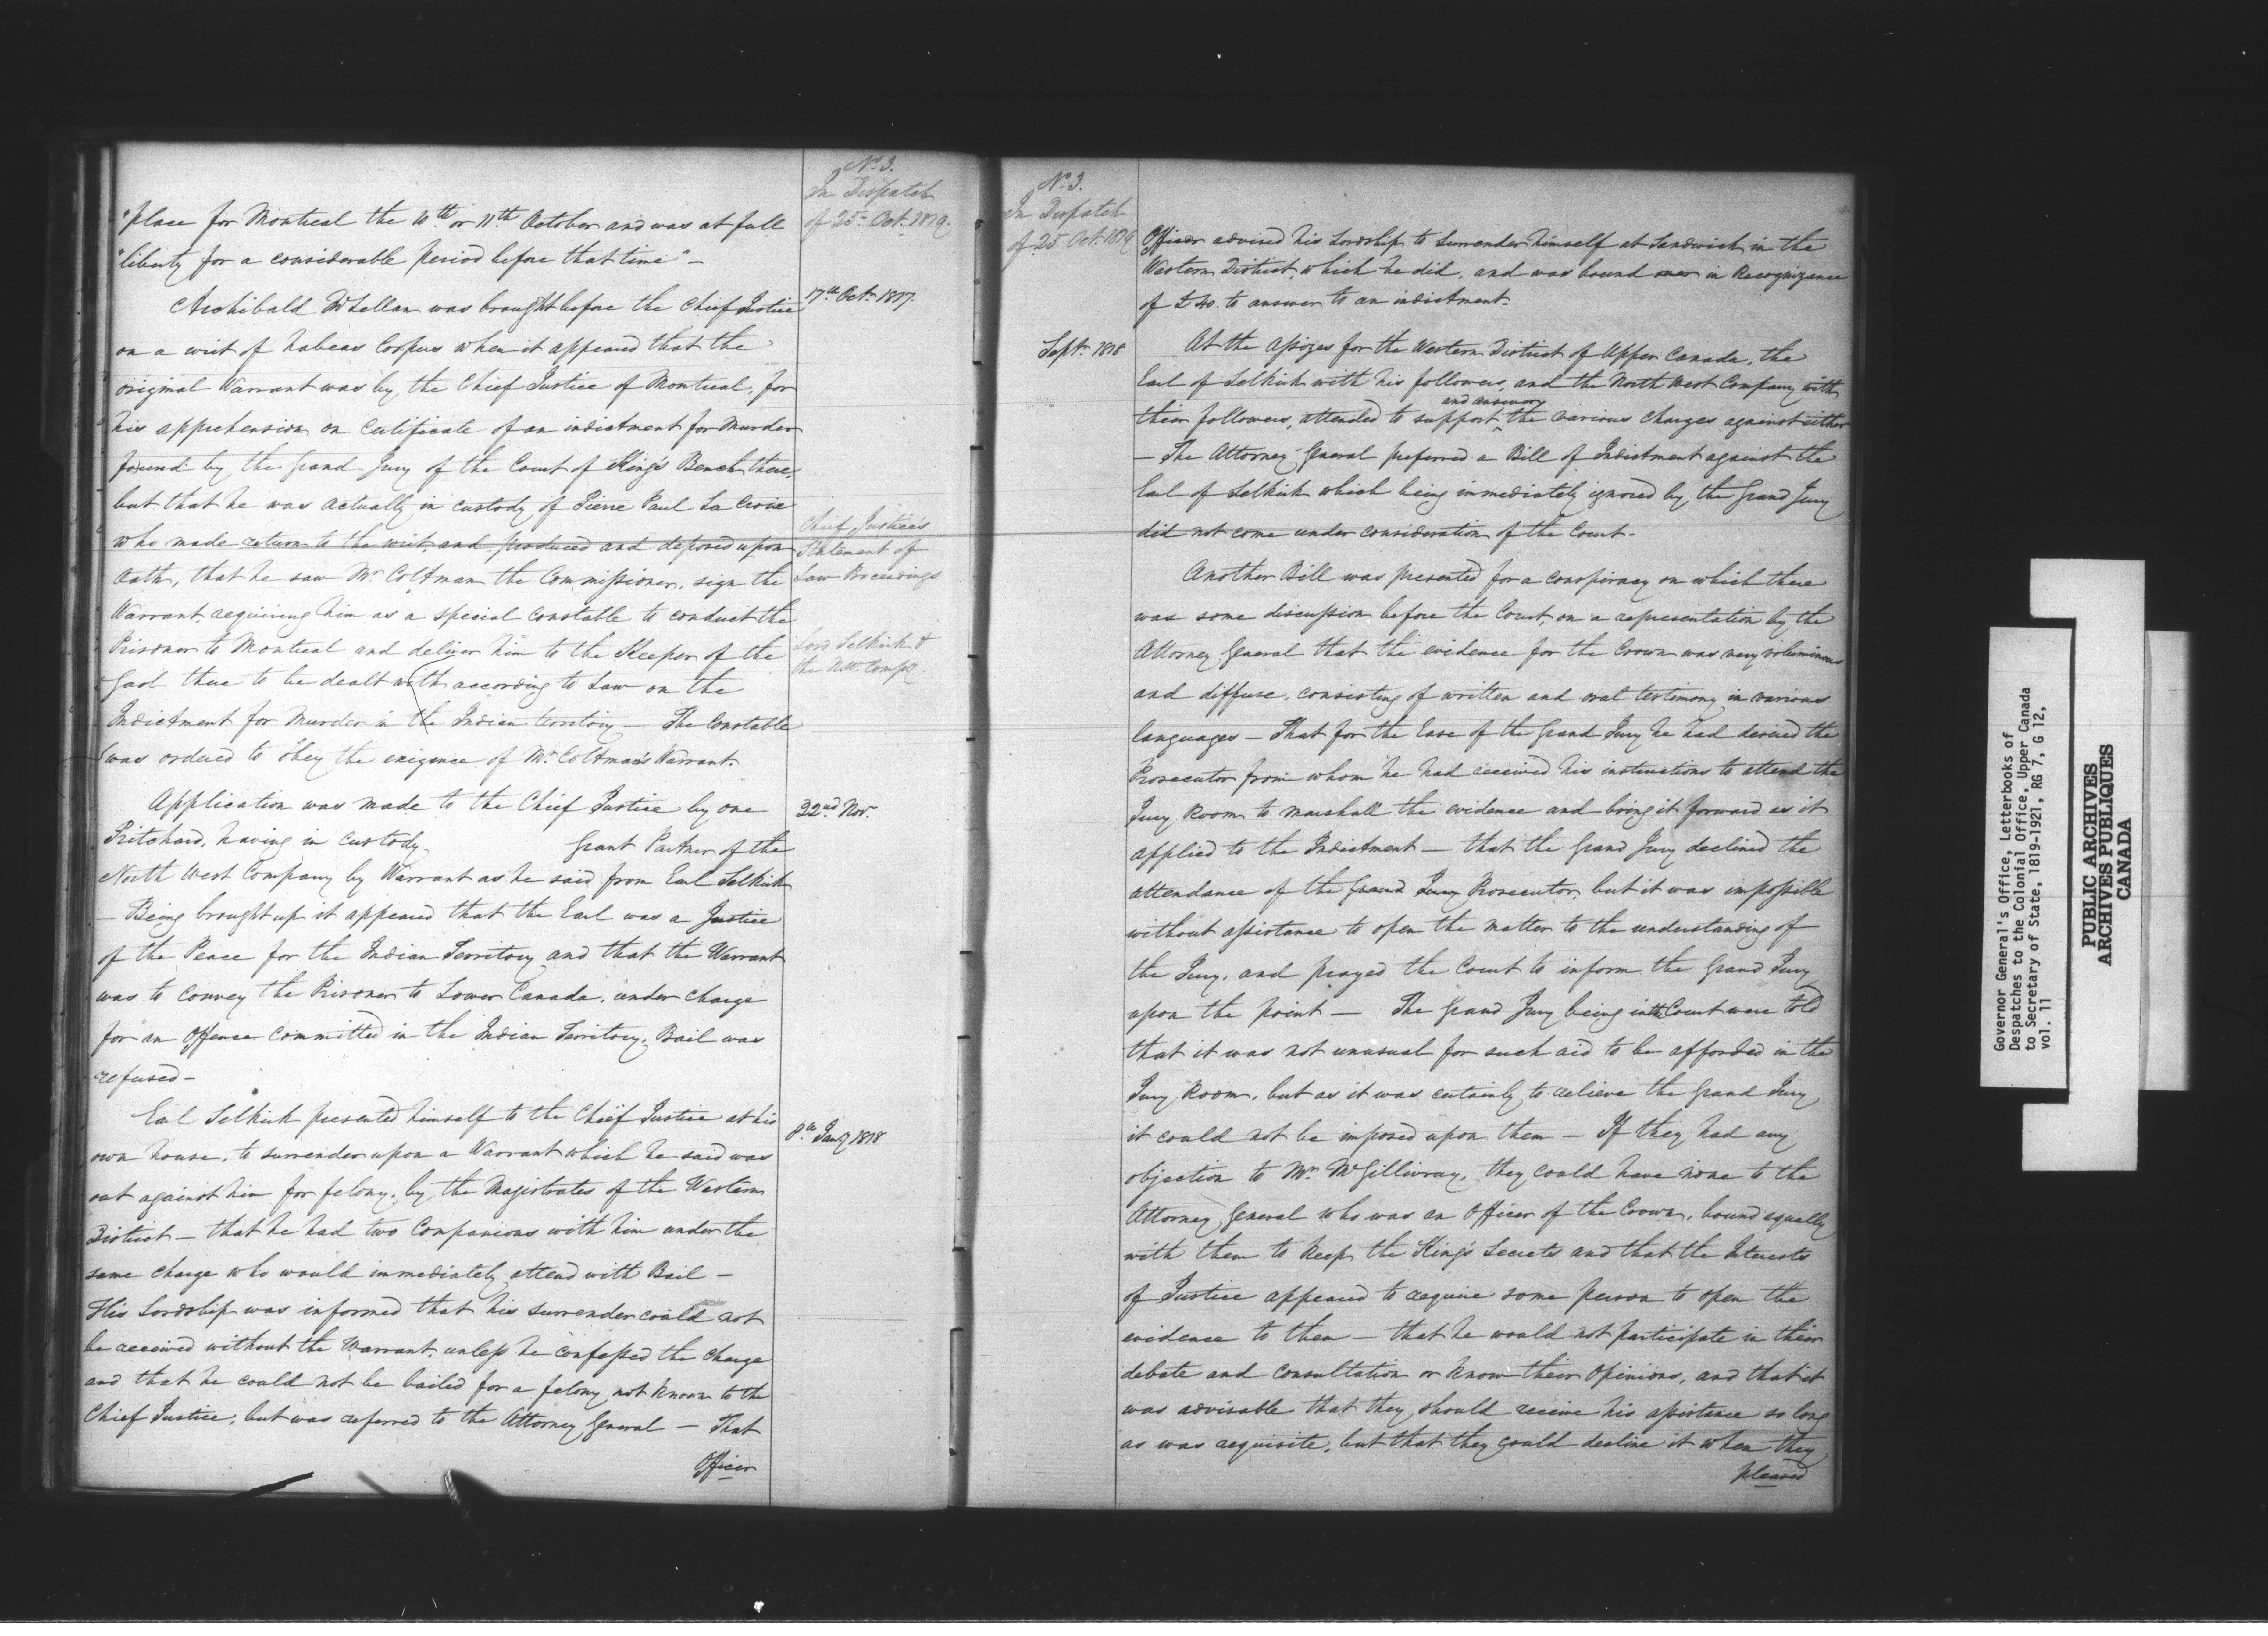 No. 3.
In Dispatch
of 25 Oct. 1819.
"place for Montreal the 10th or 11th October and was at full
"liberty for a considerable period before that time" -
17th Oct. 1817.
Archibald McLellan was brought before the Chief Justice
on a writ of habeas Corpus when it appeared that the
original Warrant was by the Chief Justice of Montreal, for
his apprehension on Certificate of an indictment for Murder
found by the Grand Jury of the Court of King's Bench there,
but that he was actually in custody of Pierre Paul La Croix
who made return to the writ, and produced and deposed upon
Oath, that he saw Mr. Coltman the Commissioner, sign the
Warrant requiring him as a special constable to conduct the
Prisoner to Montreal and deliver him to the Keeper of the
Gaol there to be dealt with according to Law on the
Indictment for Murder in the Indian territory - The Constable
was ordered to obey the exigence of Mr. Coltman's Warrant.
Chief Justice's
Statement of
Law Proceedings
Lord Selkirk &
the NW Compy.
22nd Nov.
Application was made to the Chief Justice by one
Pritchard, having in custody Grant Partner of the
North West Company by Warrant as he said from Earl Selkirk
- Being brought up it appeared that the Earl was a Justice
of the Peace for the Indian Territory and that the Warrant
was to convey the Prisoner to Lower Canada, under charge
for an Offence committed in the Indian Territory. Bail was
refused -
8th Jany 1818
Earl Selkirk presented himself to the Chief Justice at his
own house, to surrender upon a Warrant which he said was
out against him for felony, by the Magistrates of the Western
District - that he had two Companions with him under the
same charge who would immediately attend with Bail -
His Lordship was informed that his surrender could not
be received without the Warrant, unless he confessed the charge
and that he could not be bailed for a felony not known to the
Chief Justice, but was referred to the Attorney General - That
Officer
No. 3.
In Dispatch
of 25 Oct. 1819
Officer advised his Lordship to surrender himself at Sandwich in the
Western District, which he did, and was bound over in Recognizance
of £40. to answer to an indictment.
Septr. 1818
At the Assizes for the Western District of Upper Canada, the
Earl of Selkirk with his followers, and the North West Company with
their followers, attended to support and answer the various charges against either
- The Attorney General preferred a Bill of Indictment against the
Earl of Selkirk which being immediately ignored by the Grand Jury
did not come under consideration of the Court.
Another Bill was presented for a conspiracy on which there
was some discussion before the Court, on a representation by the
Attorney General that the evidence for the Crown was very voluminous
and diffuse, consisting of written and oral testimony in various
languages - That for the Ease of the Grand Jury he had desired the
Prosecutor from whom he had received his instructions to attend the
Jury Room to marshall the evidence and bring it forward as it
applied to the Indictment - that the Grand Jury declined the
attendance of the Grand Jury Prosecutor, but it was impossible
without assistance to open the matter to the understanding of
the Jury, and prayed the Court to inform the Grand Jury
upon the point - The Grand Jury being in the Court were told
that it was not unusual for such aid to be afforded in the
Jury Room, but as it was certainly to relieve the Grand Jury
it could not be imposed upon them - If they had any
objection to Mr. McGillivray, they could have none to the
Attorney General who was an Officer of the Crown, bound equally
with them to keep the King's Secrets and that the Interests
of Justice appeared to require some person to open the
evidence to them - that he would not participate in their
debate and consultation or know their Opinions, and that it
was advisable that they should receive his assistance so long
as was requisite, but that they could decline it when they
pleased
Governor General's Office, Letterbooks of
Despatches to the Colonial Office, Upper Canada
to Secretary of State, 1819-1921, RG 7, G 12,
vol. 11
PUBLIC ARCHIVES
ARCHIVES PUBLIQUES
CANADA